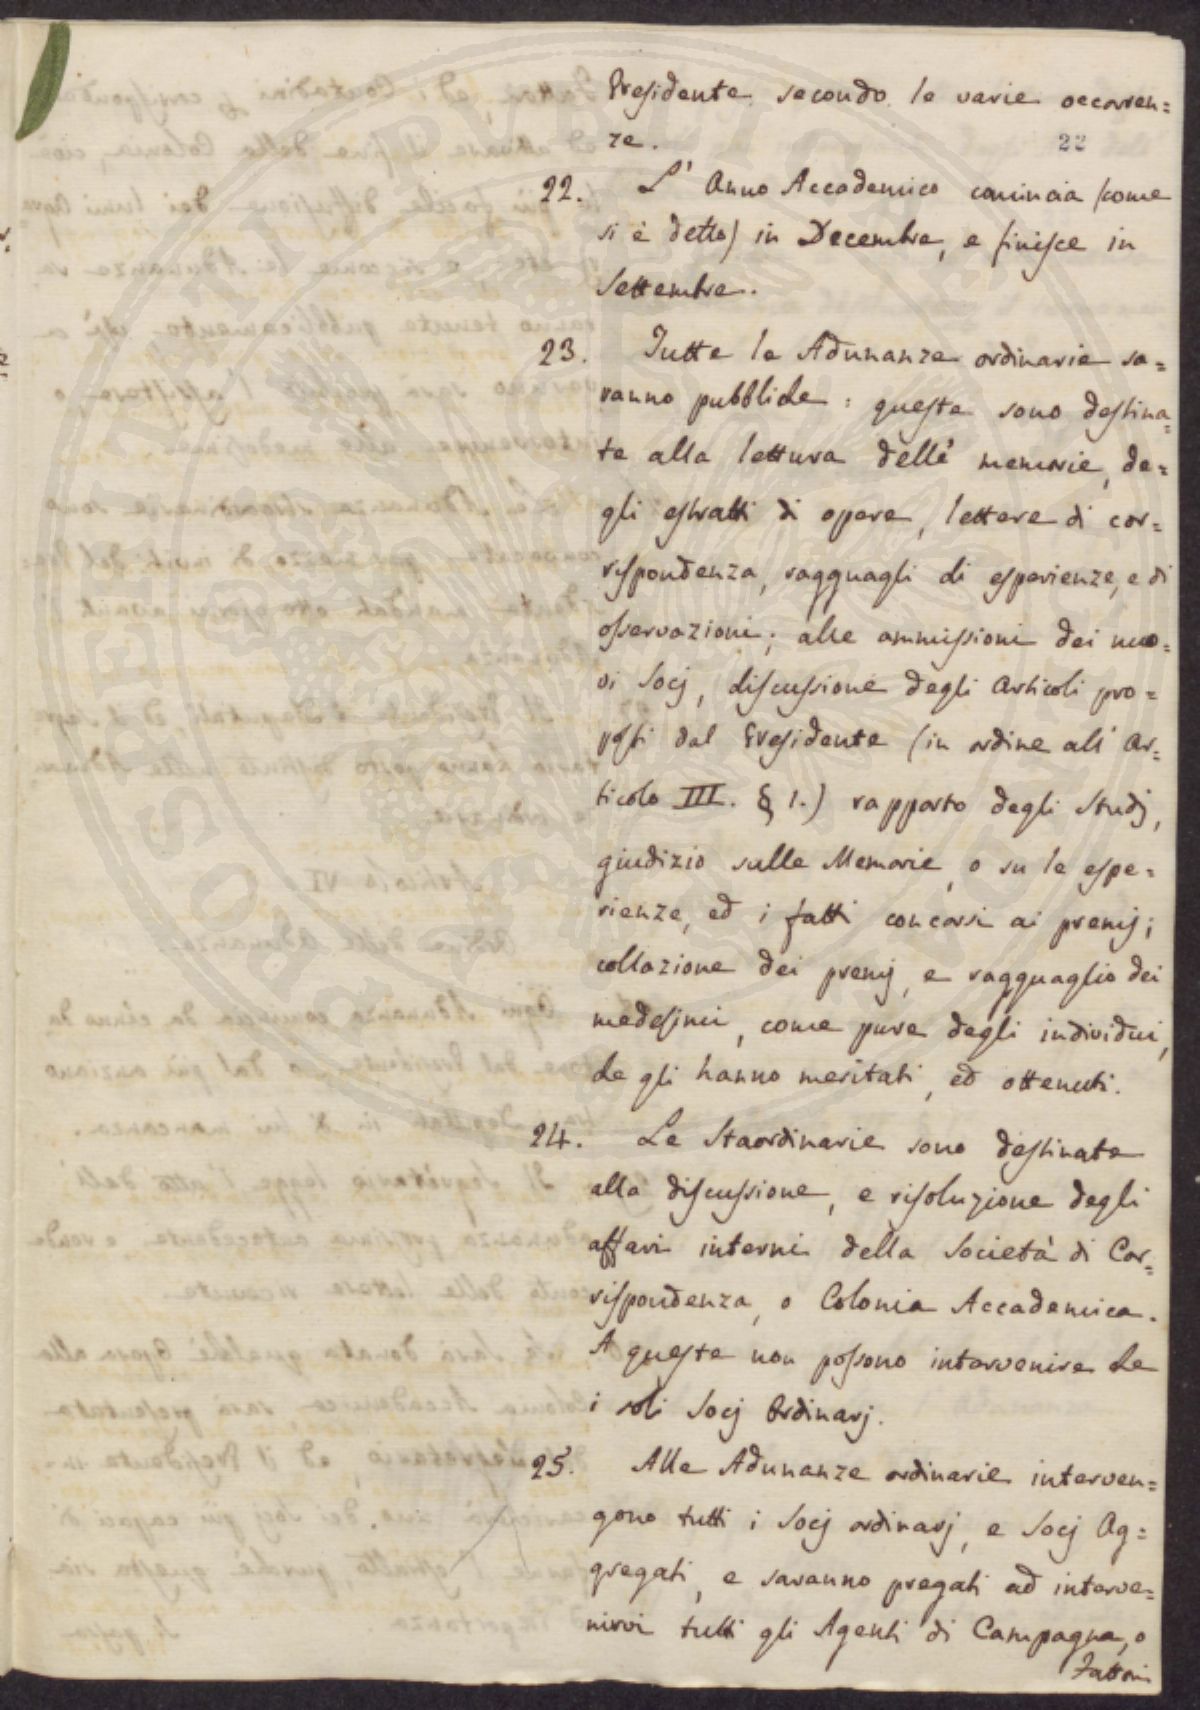 Presidente secondo le varie occorren=
ze.
22
22. L' Anno Accademico comincia (come
si è detto) in Decembre, e finisce in
Settembre.
23. Tutte le Adunanze ordinarie sa=
ranno pubbliche: queste sono destina=
te alla lettura delle memorie, de=
gli estratti di opere, lettere di cor=
rispondenza, ragguagli di esperienze, e di
osservazioni; alle ammissioni dei nuo=
vi Socj, discussione degli Articoli pro=
posti dal Presidente (in ordine all' Ar=
ticolo III. § 1.) rapporto degli Studj,
giudizio sulle Memorie, o su le espe=
rienze, ed i fatti concorsi ai premj;
collazione dei premj, e ragguaglio dei
medesimi, come pure degli individui,
che gli hanno meritati, ed ottenuti.
24. Le Staordinarie sono destinate
alla discussione, e risoluzione degli
affari interni della Società di Cor=
rispondenza, o Colonia Accademica.
A queste non possono intervenire che
i soli Socj Ordinarj.
25. Alle Adunanze ordinarie interven=
gono tutti i Socj ordinarj, e Socj Ag=
gregati, e saranno pregati ad interve=
nirvi tutti gli Agenti di Campagna, o
Fattori